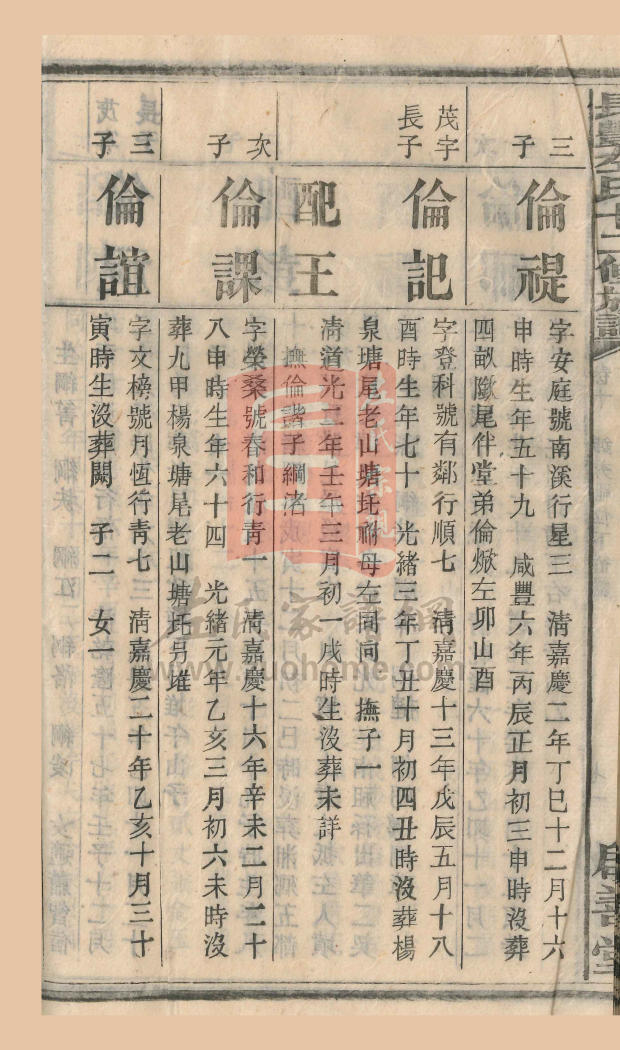 三子
倫禔
字安庭號南溪行星三 清嘉慶二年丁巳十二月十六
申時生年五十九 咸豐六年丙辰正月初三申時沒葬
四畝墩尾伴堂弟倫焮左卯山酉
茂宇長子
倫記
字登科號有鄰行順七 清嘉慶十三年戊辰五月十八
酉時生年七十 光緒三年丁丑十月初四丑時沒葬楊
泉塘尾老山塘圫祔母左同向 撫子一
配王
清道光二年壬午三月初一戌時生沒葬未詳
撫倫諧子綱渚
次子
倫課
字榮桑號春和行青十五 清嘉慶十六年辛未二月二十
八申時生年六十四 光緒元年乙亥三月初六未時沒
葬九甲楊泉塘尾老山塘圫另堆
三子
倫誼
字文榜號月恆行青七三 清嘉慶二十年乙亥十月三十
寅時生沒葬闕 子二 女一
善堂
老氏家譜網
www.luohome.com